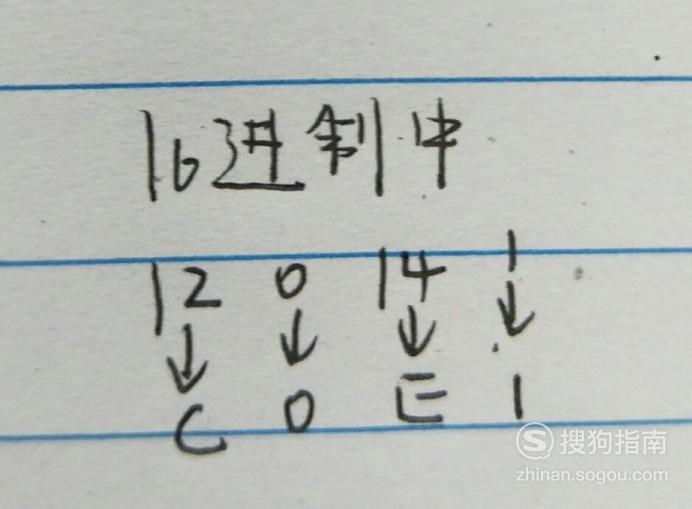 16进制中
12 0 14 1
↓ ↓ ↓ ↓
C 0 E 1
S 搜狗指南
zhinan.sogou.com